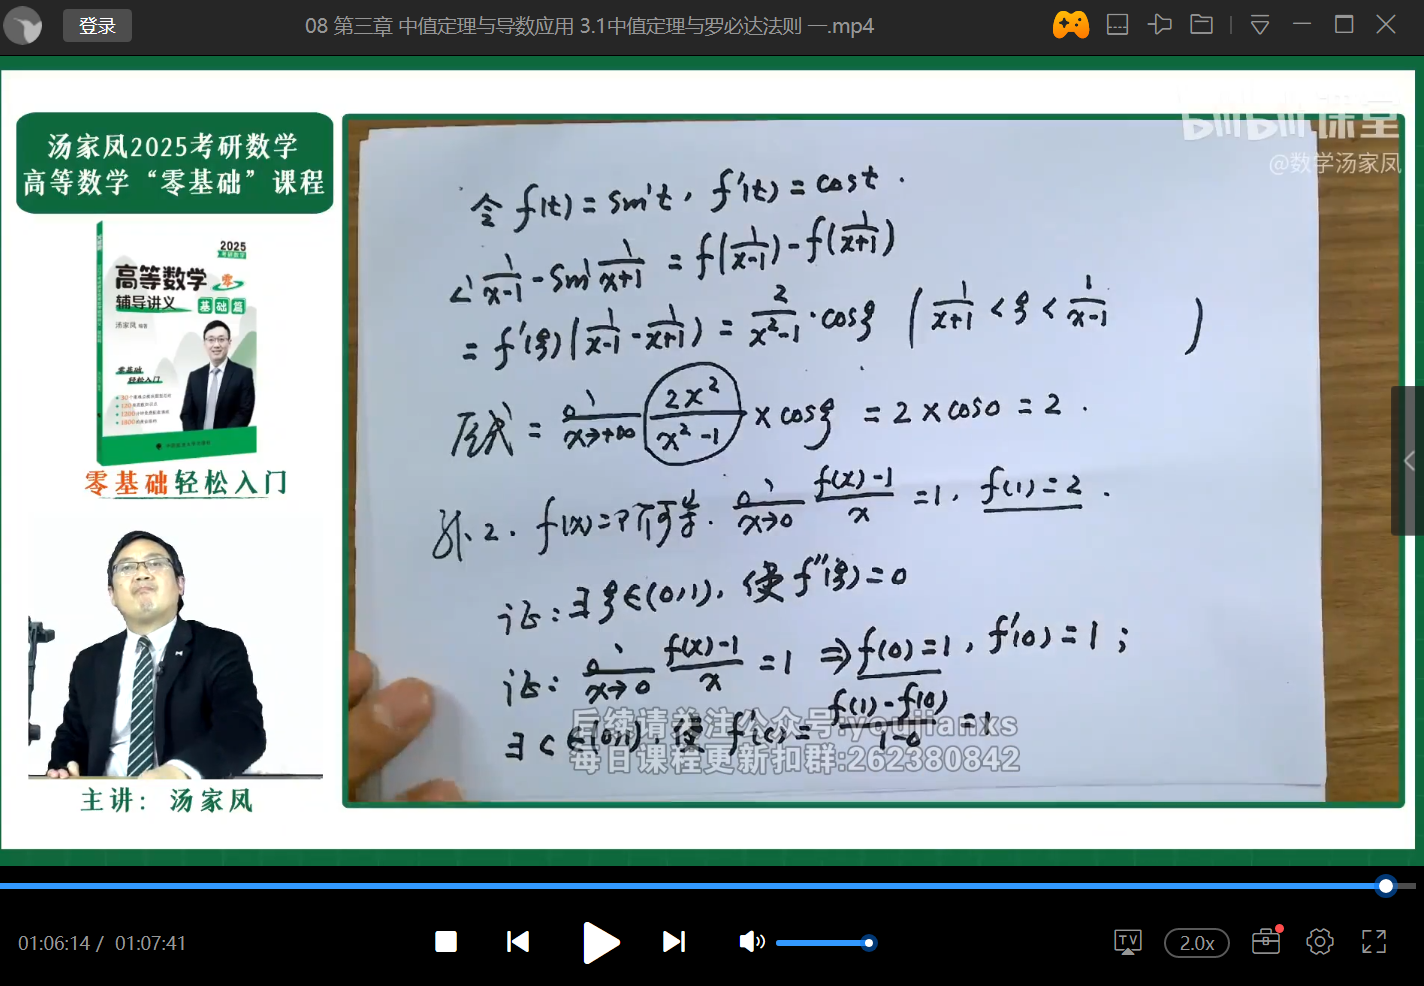 登录
08 第三章 中值定理与导数应用 3.1中值定理与罗必达法则 一.mp4
汤家凤2025考研数学
高等数学“零基础”课程
2025
考研数学
高等数学 零
辅导讲义 基础篇
汤家凤 编著
零基础
轻松入门
零基础轻松入门
主讲：汤家凤
bilibili课堂
@数学汤家凤
令 f(t) = sint, f'(t) = cost.
1/(x-1) - sin 1/(x+1) = f(1/(x-1)) - f(1/(x+1))
= f'(ξ)(1/(x-1) - 1/(x+1)) = 2/(x²-1) · cosξ (1/(x+1) < ξ < 1/(x-1))
原式 = x→+∞ 2x²/(x²-1) × cosξ = 2 × cos0 = 2.
例2. f(x) = 二阶可导. x→0 (f(x)-1)/x = 1, f(1) = 2.
证: ∃ ξ∈(0,1), 使 f''(ξ) = 0
证: x→0 (f(x)-1)/x = 1 ⇒ f(0) = 1, f'(0) = 1;
∃ c∈(0,1), 使 f'(c) = (f(1)-f(0))/(1-0) = 1
后续请关注公众号:youjianxs
每日课程更新扣群:262380842
01:06:14 / 01:07:41
TV
2.0x